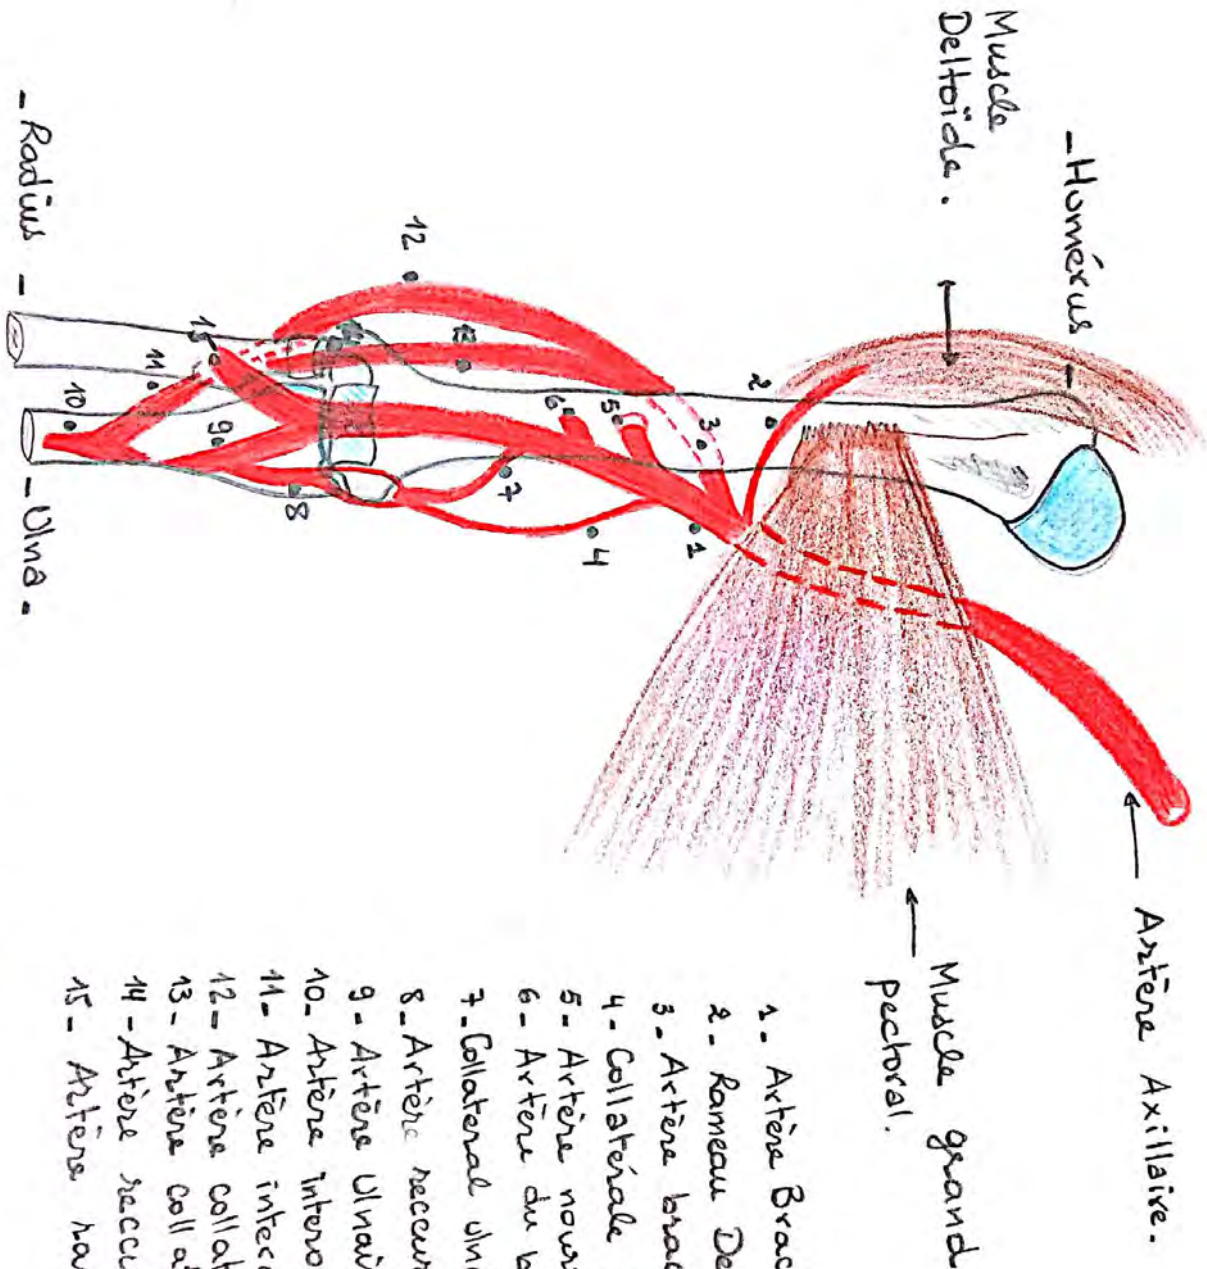 Artère Axillaire.
Muscle grand
pectoral.
- Humérus -
Muscle
Deltoïde.
1
2
3
4
5
6
7
8
9
10
11
12
15
- Radius -
- Ulna -
1- Artère Brac
2- Rameau De
3- Artère brac
4- Collatérale
5- Artère nour
6- Artère du b
7- Collateral uln
8- Artère reccur
9- Artère Ulnai
10- Artère intero
11- Artère intero
12- Artère collat
13- Artère collat
14- Artère reccu
15- Artère